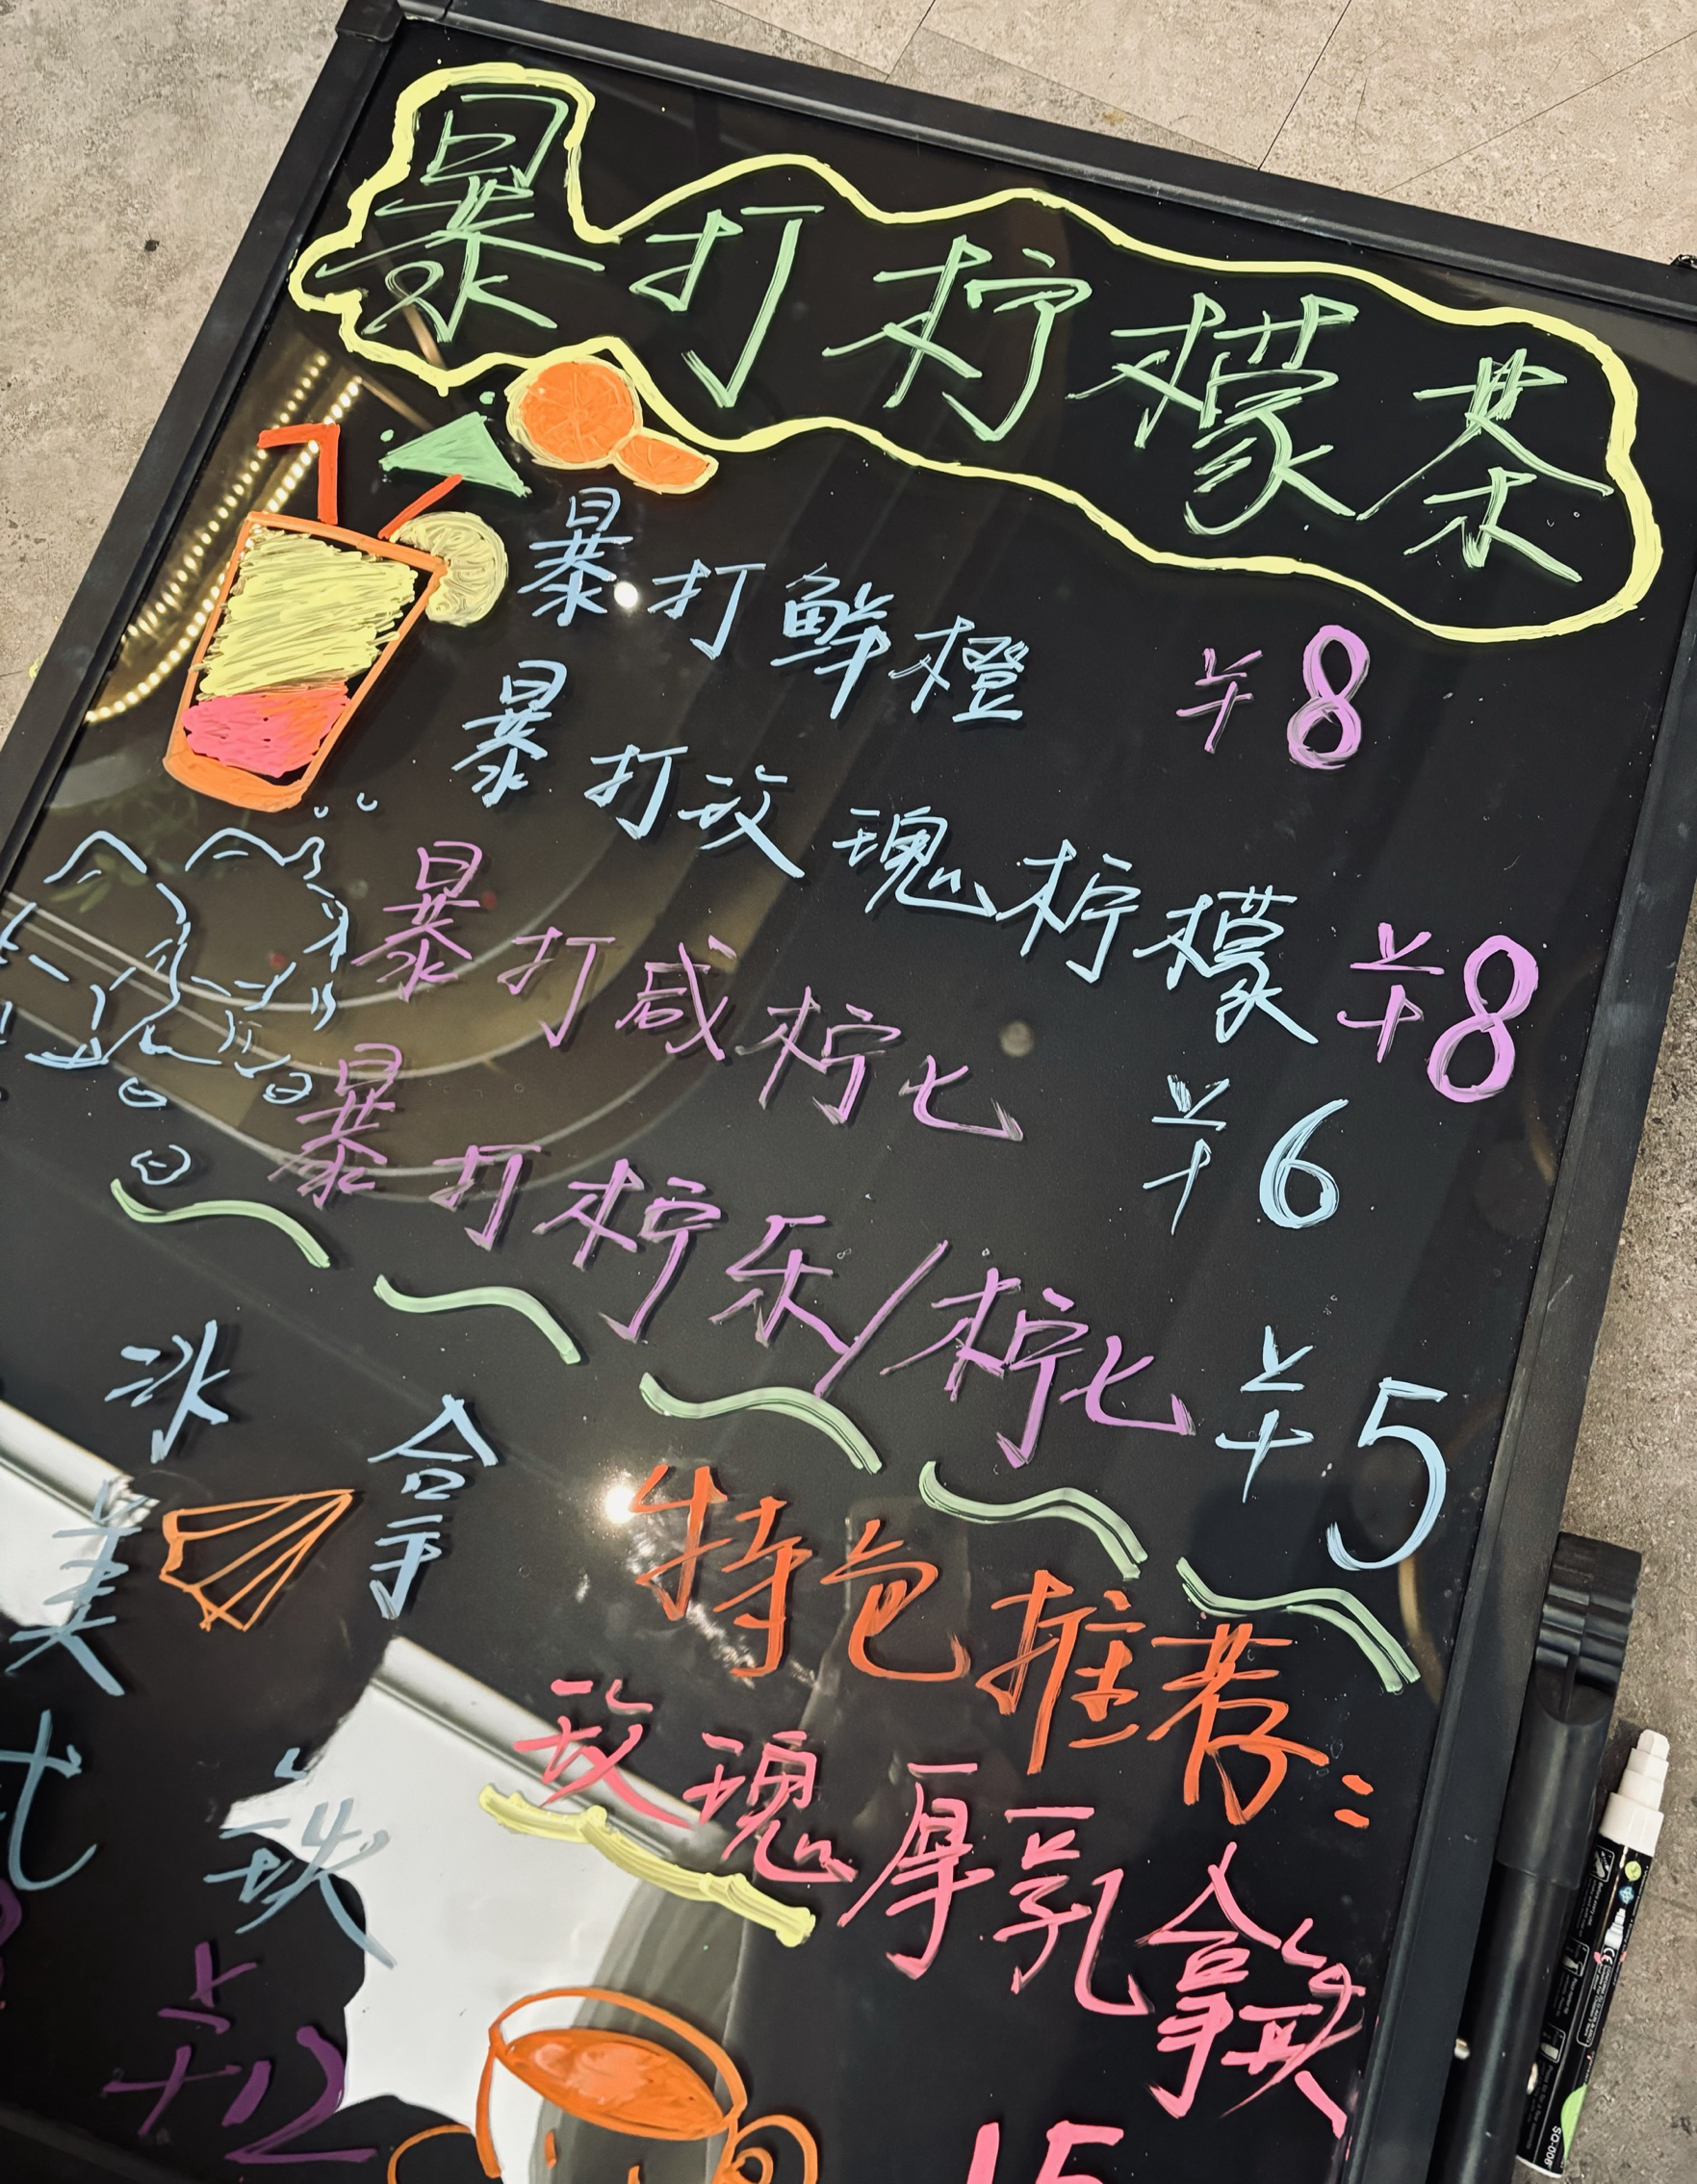 暴打柠檬茶
暴打鲜橙 ¥8
暴打玫瑰柠檬 ¥8
暴打咸柠七 ¥6
暴打柠乐/柠七 ¥5
冰美式
拿铁
¥12
特色推荐:
玫瑰厚乳拿铁
15